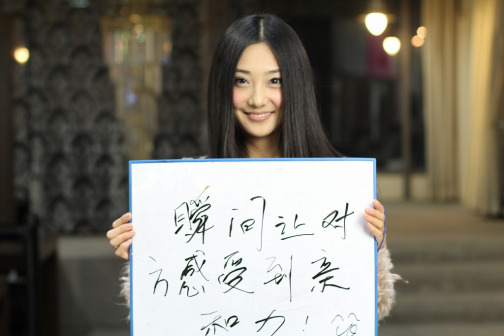 瞬间让对
方感受到亲
和力!